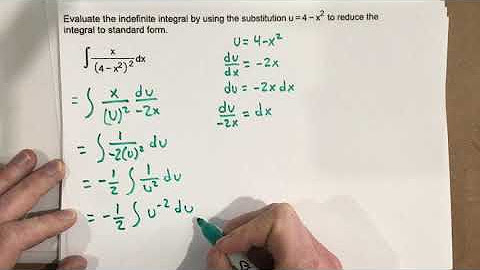 Evaluate the indefinite integral by using the substitution u = 4 − x² to reduce the
integral to standard form.
∫ x/(4 − x²)² dx
U = 4 − x²
du/dx = −2x
du = −2x dx
du/−2x = dx
= ∫ x/(U)² du/−2x
= ∫ 1/−2(U)² du
= −1/2 ∫ 1/U² du
= −1/2 ∫ U⁻² du